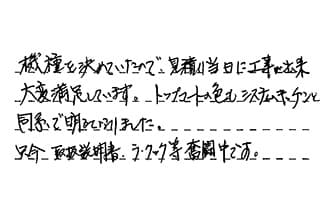 機種を決めていたので、見積り当日に工事が出来
大変満足しています。トップコートの色もシステムキッチンと
同系で明るくなりました。
只今 取扱説明書、ラ・クック等奮闘中です。